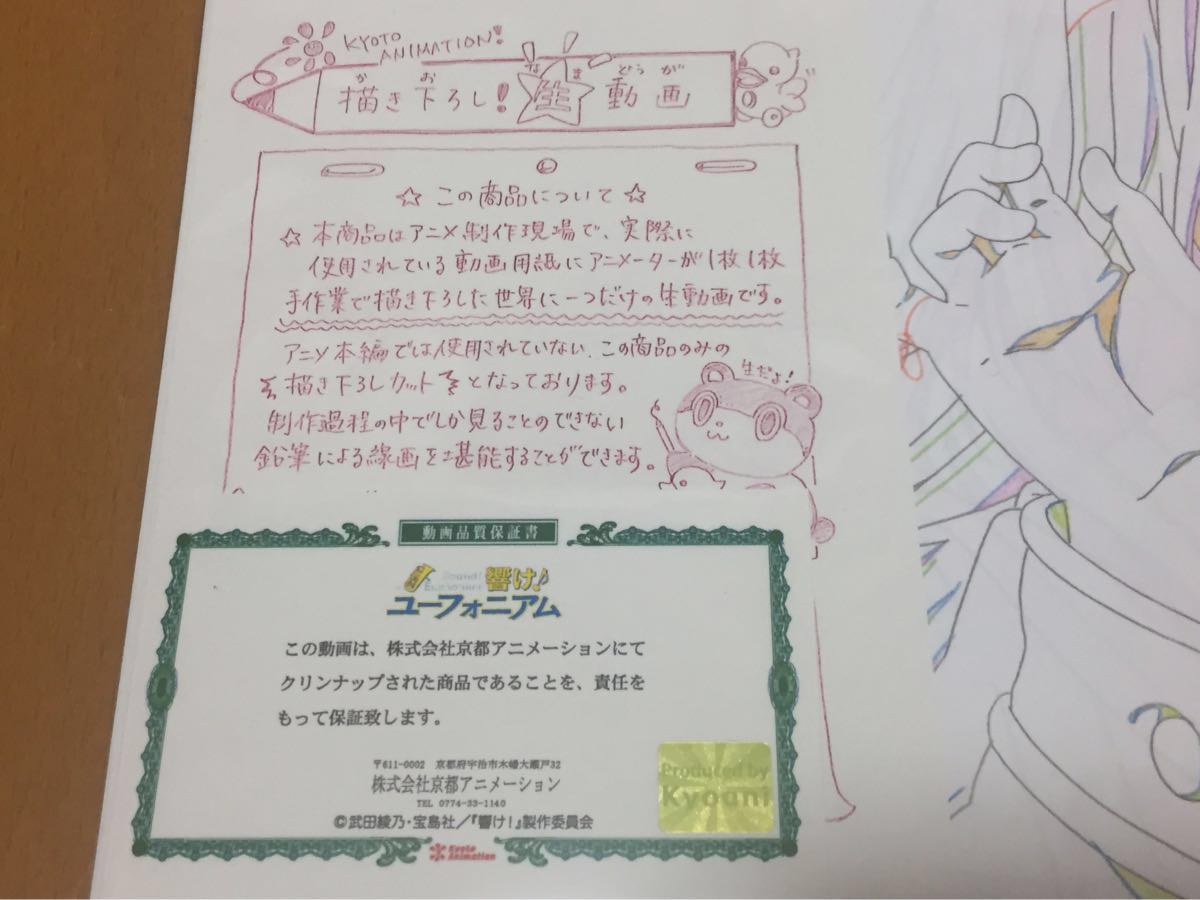 KYOTO
ANIMATION!
か お な ま どう が
描き下ろし! 生 動画
☆ この商品について ☆
☆ 本商品はアニメ制作現場で、実際に
使用されている動画用紙にアニメーターが1枚1枚
手作業で描き下ろした世界に一つだけの生動画です。
アニメ本編では使用されていない、この商品のみの
描き下ろしカットとなっております。
生だよ!
制作過程の中でしか見ることのできない
鉛筆による線画を堪能することができます。
動画品質保証書
Sound!
Euphonium
響け!
ユーフォニアム
この動画は、株式会社京都アニメーションにて
クリンナップされた商品であることを、責任を
もって保証致します。
〒611-0002 京都府宇治市木幡大瀬戸32
株式会社京都アニメーション
TEL 0774-33-1140
©武田綾乃・宝島社/『響け!』製作委員会
Produced by
Kyoani
Kyoto
Animation